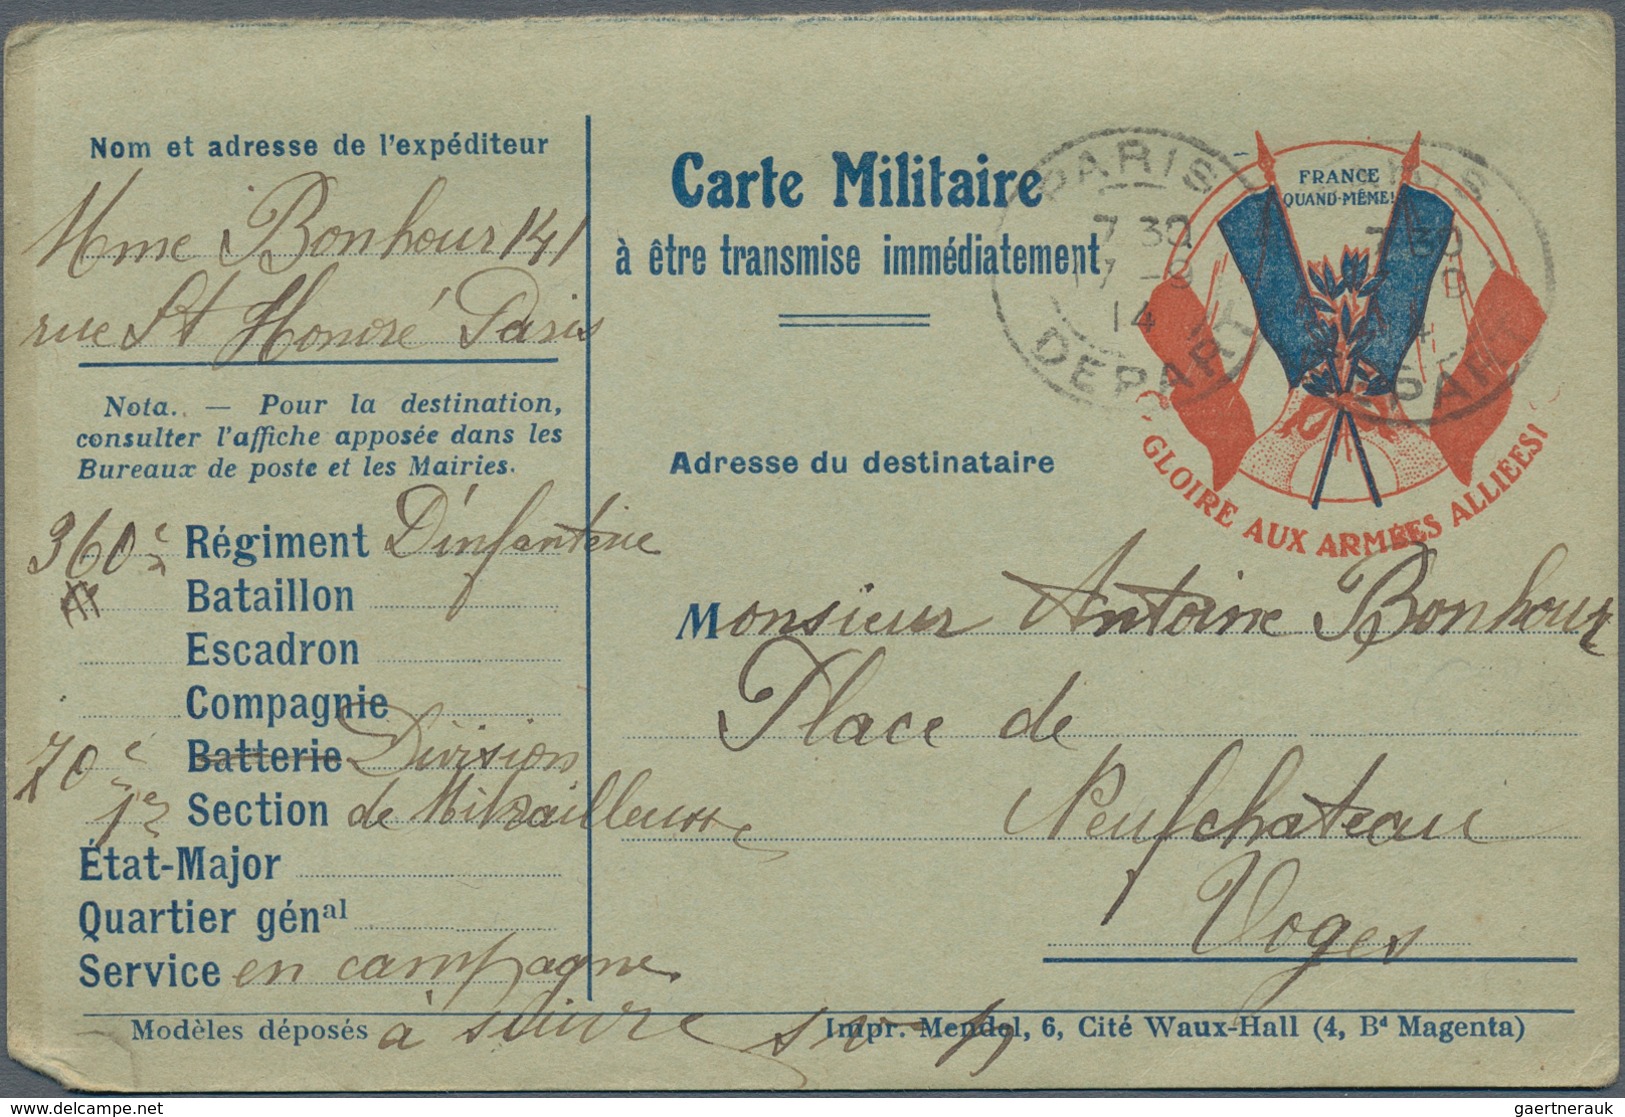 Nom et adresse de l'expéditeur
Mme Bonhour 141
rue St Honoré Paris
Nota. — Pour la destination,
consulter l'affiche apposée dans les
Bureaux de poste et les Mairies.
360e Régiment D'infanterie
Bataillon
Escadron
Compagnie
70e Batterie Division
1re Section de Mitrailleuse
État-Major
Quartier génal
Service en campagne
à suivre
Modèles déposés
Carte Militaire
à être transmise immédiatement
PARIS
7 30
17 -9
14
DEPART
FRANCE
QUAND-MÊME!
GLOIRE AUX ARMÉES ALLIÉES!
Adresse du destinataire
Monsieur Antoine Bonhour
Place de
Neufchateau
Voges
Impr. Mendel, 6, Cité Waux-Hall (4, Bd Magenta)
delcampe.net
gaertnerauk